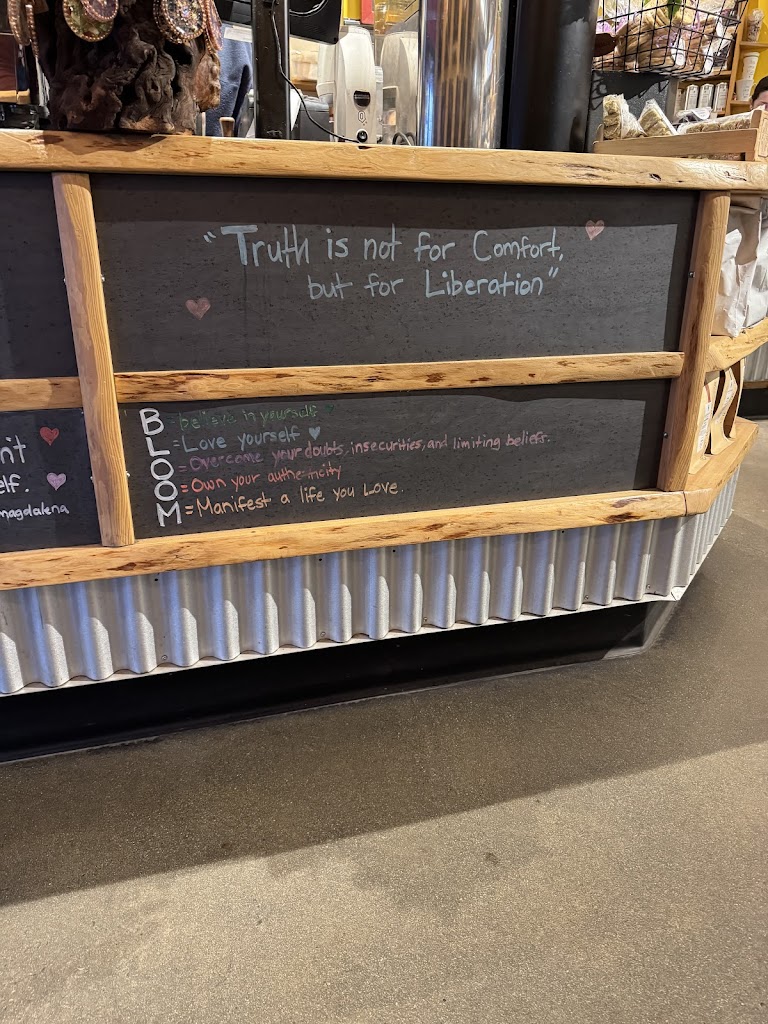 "Truth is not for Comfort,
but for Liberation"
n't
elf.
magdalena
B = believe in yourself
L = Love yourself
O = Overcome your doubts, insecurities, and limiting beliefs.
O = Own your authenticity
M = Manifest a life you Love.